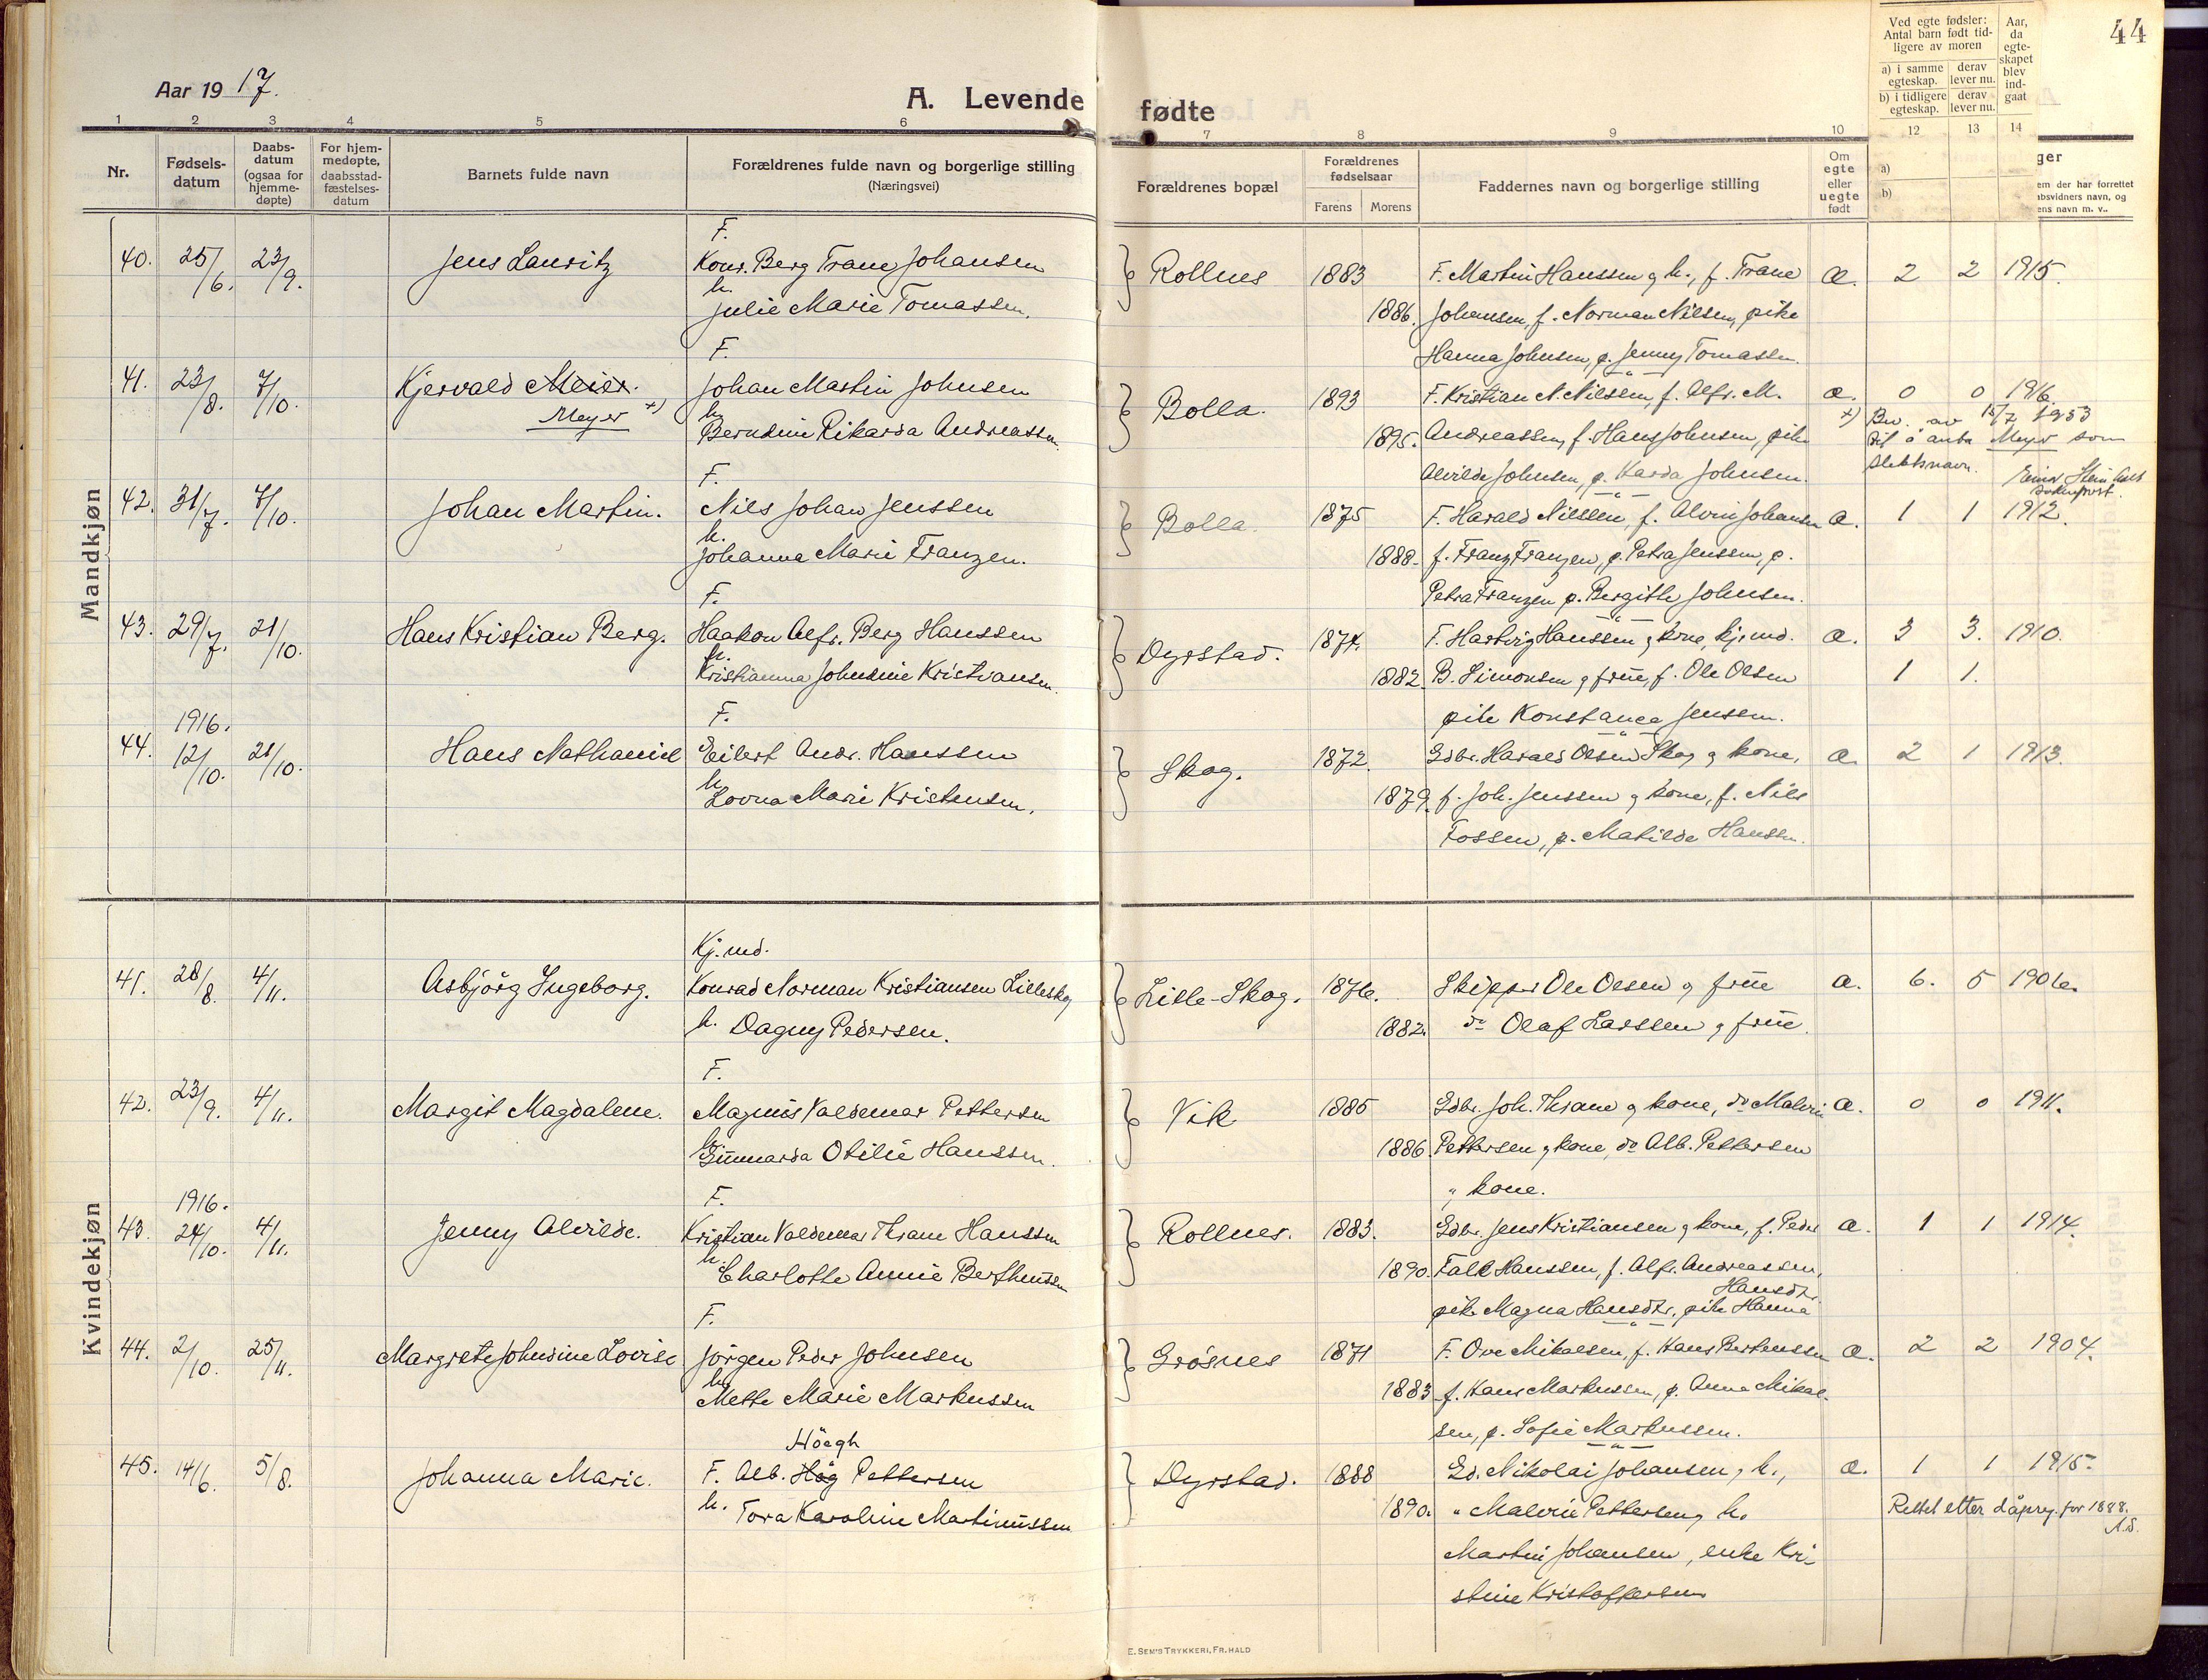 44
Aar 1917.
A. Levende fødte
1 2 3 4 5 6 7 8 9 10 12 13 14
Nr.
Fødsels-
datum
Daabs-
datum
(ogsaa for
hjemme-
døpte)
For hjem-
medøpte,
daabsstad-
fæstelses-
datum
Barnets fulde navn
Forældrenes fulde navn og borgerlige stilling
(Næringsvei)
Forældrenes bopæl
Forældrenes
fødselsaar
Farens Morens
Faddernes navn og borgerlige stilling
Om
egte
eller
uegte
født
Ved egte fødsler:
Antal barn født tid-
ligere av moren
a) i samme
egteskap.
derav
lever nu.
b) i tidligere
egteskap.
derav
lever nu.
Aar,
da
egte-
skapet
blev
ind-
gaat
a)
b)
ger
em der har forrettet
absvidners navn, og
ens navn m. v..
Mandkjøn
F.
40. 25/6. 23/9. Jens Lauritz Konr. Berg Trane Johansen Rollnes 1883 F. Martin Hanssen og h., f. Trane æ. 2 2 1915.
h.
Julie Marie Tomassen. 1886. Johansen, f. Norman Nilsen, pike
Hanna Johnsen, p. Jenny Tomassen.
F.
41. 23/8. 7/10. Kjervald Meier. Johan Martin Johnsen Bolla. 1893 F. Kristian N. Nilssen, f. Alfr. M. æ. 0 0 1916.
Meyer x)
h.
Berndine Rikarda Andreassen 1895. Andreassen, f. Hans Johnsen, pike
Alvilde Johnsen, p. Karda Johnsen.
x) Bev. av 15/7 1953
til å anta Meyer som
slektsnavn.
F.
42. 31/7. 7/10. Johan Martin. Nils Johan Jenssen Bolla. 1875 F. Harald Nilssen, f. Alvin Johansen æ. 1 1 1912.
h.
Johanna Marie Franzen. 1888. f. Franz Franzen, p. Petra Jenssen, p.
Petra Franzen p. Bergithe Johnsen.
F.
43. 29/7. 21/10. Hans Kristian Berg. Haakon Alfr. Berg Hanssen Dyrstad. 1874. F. Hartvig Hanssen og kone, kjmd. æ. 3 3. 1910.
h.
Kristianna Johndine Kristiansen. 1882. B. Simonsen og frue, f. Ole Olsen 1 1.
pike Konstance Jenssen.
1916. F.
44. 12/10. 21/10. Hans Nathaniel Eilert Andr. Hanssen Skog. 1872. Gdbr. Harald Olsen Skog og kone, æ. 2 1 1913.
h.
Lovna Marie Kristensen. 1879. f. Joh. Jenssen og kone, f. Nils
Fossen, p. Matilde Hanssen.
Kvindekjøn
Kj.md.
41. 28/8. 4/11. Asbjörg Ingeborg. Konrad Norman Kristiansen Lilleskog Lille-Skog. 1876. Skipper Ole Olsen og frue æ. 6. 5 1906.
h. Dagny Pedersen. 1882. do Olaf Larssen og frue.
F.
42. 23/9. 4/11. Margit Magdalene. Magnus Valdemar Pettersen Vik 1885 Gdbr. Joh. Thrane og kone, do Malvin æ. 0 0 1911.
h.
Gunnarda Otilie Hanssen. 1886. Pettersen og kone, do Alb. Pettersen
og kone.
1916. F.
43. 24/10. 4/11. Jenny Alvilde. Kristian Valdemar Thrane Hanssen Rollnes. 1883. Gdbr. Jens Kristiansen og kone, f. Peder æ. 1 1 1914.
h.
Charlotte Annie Bertheussen 1890. Falk Hanssen, f. Alfr. Andreassen,
pike Magna Hansdtr., pike Hanna Hansdtr.
F.
44. 2/10. 25/11. Margrete Johndine Lovise Jörgen Peder Johnsen Grösnes 1871 F. Ove Mikalsen, f. Hans Bertenssen æ. 2 2 1904.
h.
Mette Marie Markussen 1883 f. Hans Markussen, p. Anna Mikal-
sen, p. Sofie Markussen.
Höegh
45. 14/6. 5/8. Johanna Marie. F. Alb. Høg Pettersen Dyrstad. 1888 Gd. Nikolai Johansen, h., æ. 1 1 1915.
h. Tora Karoline Martinussen 1890. " Malvin Pettersen, h.
Rettet etter dåpreg. for 1888.
A.S.
Martin Johansen, enke Kri-
stine Kristoffersen
E. SEM'S TRYKKERI, FR.HALD